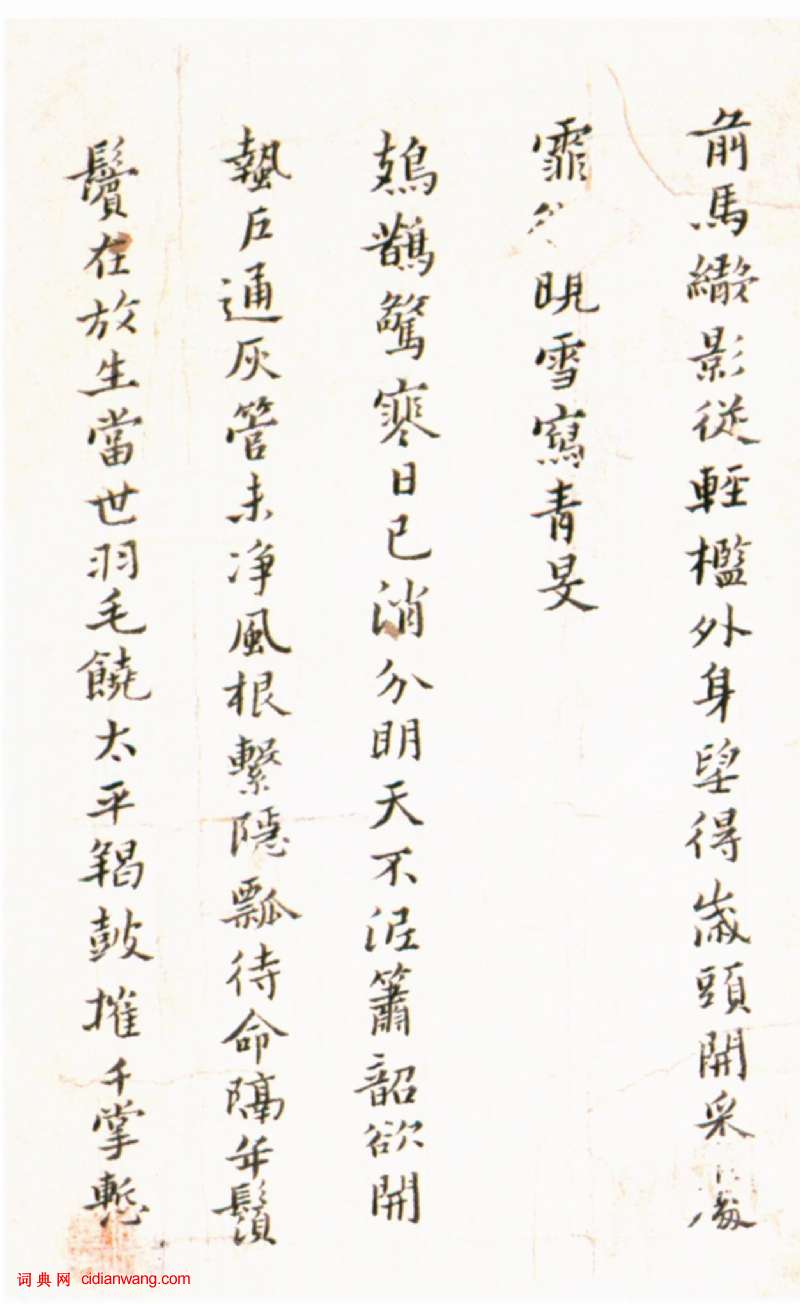 前馬繖影從輕檻外身望得歲頭開采
霏晛雪寫青旻
鳷鵲驚寒日已消分明天不涩簫韶欲開
蟄戶通灰管未净風根繫隱瓢待命隔年鬚
鬢在放生當世羽毛饒太平羯鼓摧千掌慙
词典网 cidianwang.com